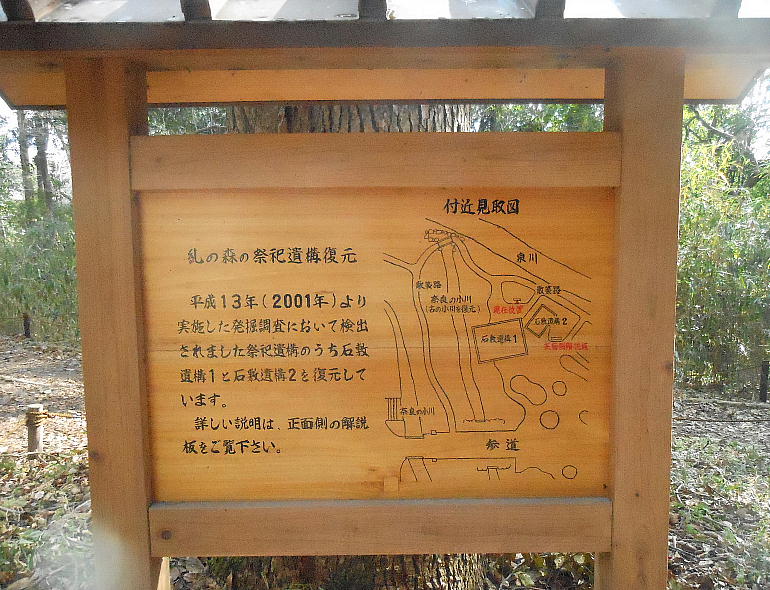 糺の森の祭祀遺構復元
平成13年(2001年)より
実施した発掘調査において検出
されました祭祀遺構のうち石敷
遺構1と石敷遺構2を復元して
います。
詳しい説明は、正面側の解説
板をご覧下さい。
付近見取図
泉川
散策路
散策路
奈良の小川
(古の小川を復元)
現在位置
石敷遺構2
石敷遺構1
奈良の小川
参道